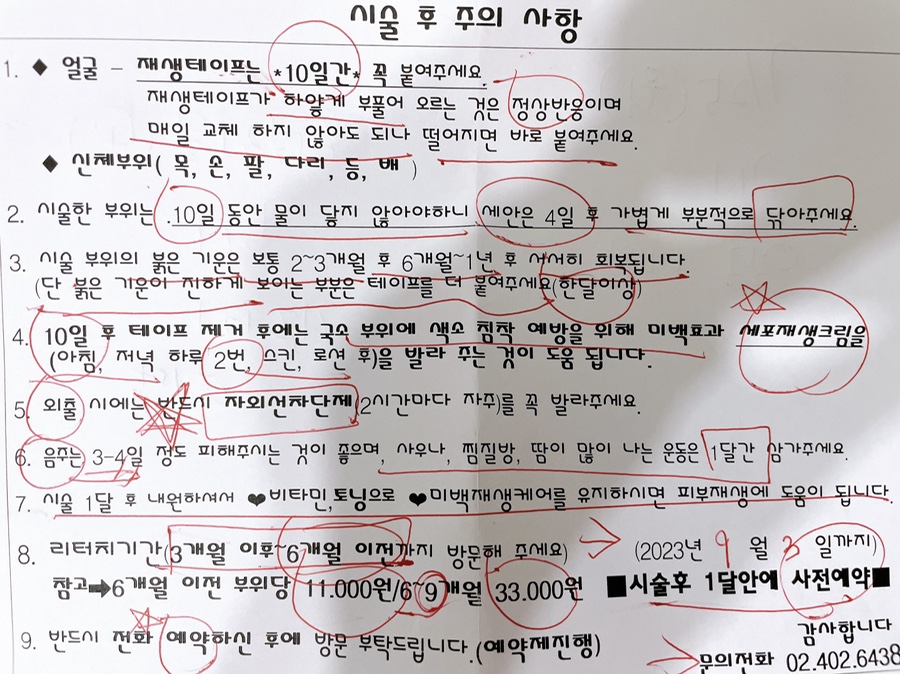 시술 후 주의 사항
1. ◆ 얼굴 - 재생테이프는 *10일간* 꼭 붙여주세요.
재생테이프가 하얗게 부풀어 오르는 것은 정상반응이며
매일 교체 하지 않아도 되나 떨어지면 바로 붙여주세요.
◆ 신체부위( 목, 손, 팔, 다리, 등, 배 )
2. 시술한 부위는 .10일 동안 물이 닿지 않아야하니 세안은 4일 후 가볍게 부분적으로 닦아주세요.
3. 시술 부위의 붉은 기운은 보통 2~3개월 후 6개월~1년 후 서서히 회복됩니다.
(단 붉은 기운이 진하게 보이는 부분은 테이프를 더 붙여주세요(한달이상)
4. 10일 후 테이프 제거 후에는 국소 부위에 색소 침착 예방을 위해 미백효과 세포재생크림을
(아침, 저녁 하루 2번, 스킨, 로션 후)을 발라 주는 것이 도움 됩니다.
5. 외출 시에는 반드시 자외선차단제(2시간마다 자주)를 꼭 발라주세요.
6. 음주는 3-4일 정도 피해주시는 것이 좋으며, 사우나, 찜질방, 땀이 많이 나는 운동은 1달간 삼가주세요.
7. 시술 1달 후 내원하셔서 ♥비타민,토닝으로 ♥미백재생케어를 유지하시면 피부재생에 도움이 됩니다.
8. 리터치기간(3개월 이후~6개월 이전까지 방문해 주세요) (2023년 9 월 3 일까지)
참고➡6개월 이전 부위당 11.000원/6~9개월 33.000원 ■시술후 1달안에 사전예약■
9. 반드시 전화 예약하신 후에 방문 부탁드립니다.(예약제진행) 감사합니다
문의전화 02.402.6438